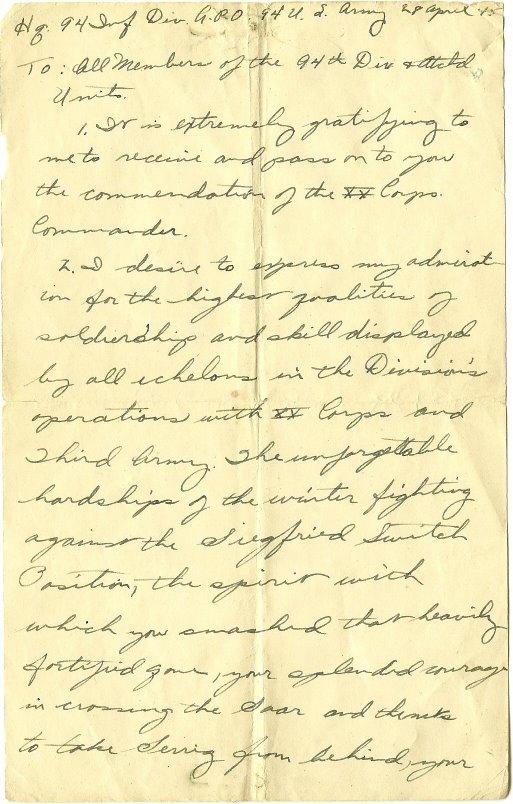 Hq. 94 Inf Div. A.P.O. 94 U.S. Army 28 April 45
To: All Members of the 94th Div & Atchd
Units.
1. It is extremely gratifying to
me to receive and pass on to you
the commendation of the XX Corps.
Commander.
2. I desire to express my admirat-
ion for the highest qualities of
soldiership and skill displayed
by all echelons in the Division's
operations with XX Corps and
Third Army. The unforgetable
hardships of the winter fighting
against the Siegfried Switch
Position, the spirit with
which you smashed that heavily
fortified zone, your splended courage
in crossing the Saar and
to take Serrig from behind, your